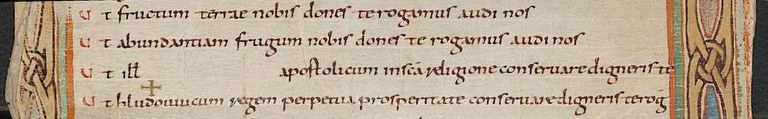 Ut fructum terrae nobis dones te rogamus audi nos
Ut abundantiam frugum nobis dones te rogamus audi nos
Ut ill apostolicum in scā religione conservare digneris te
Ut hludouuicum regem perpetua prosperitate conservare digneris te rog